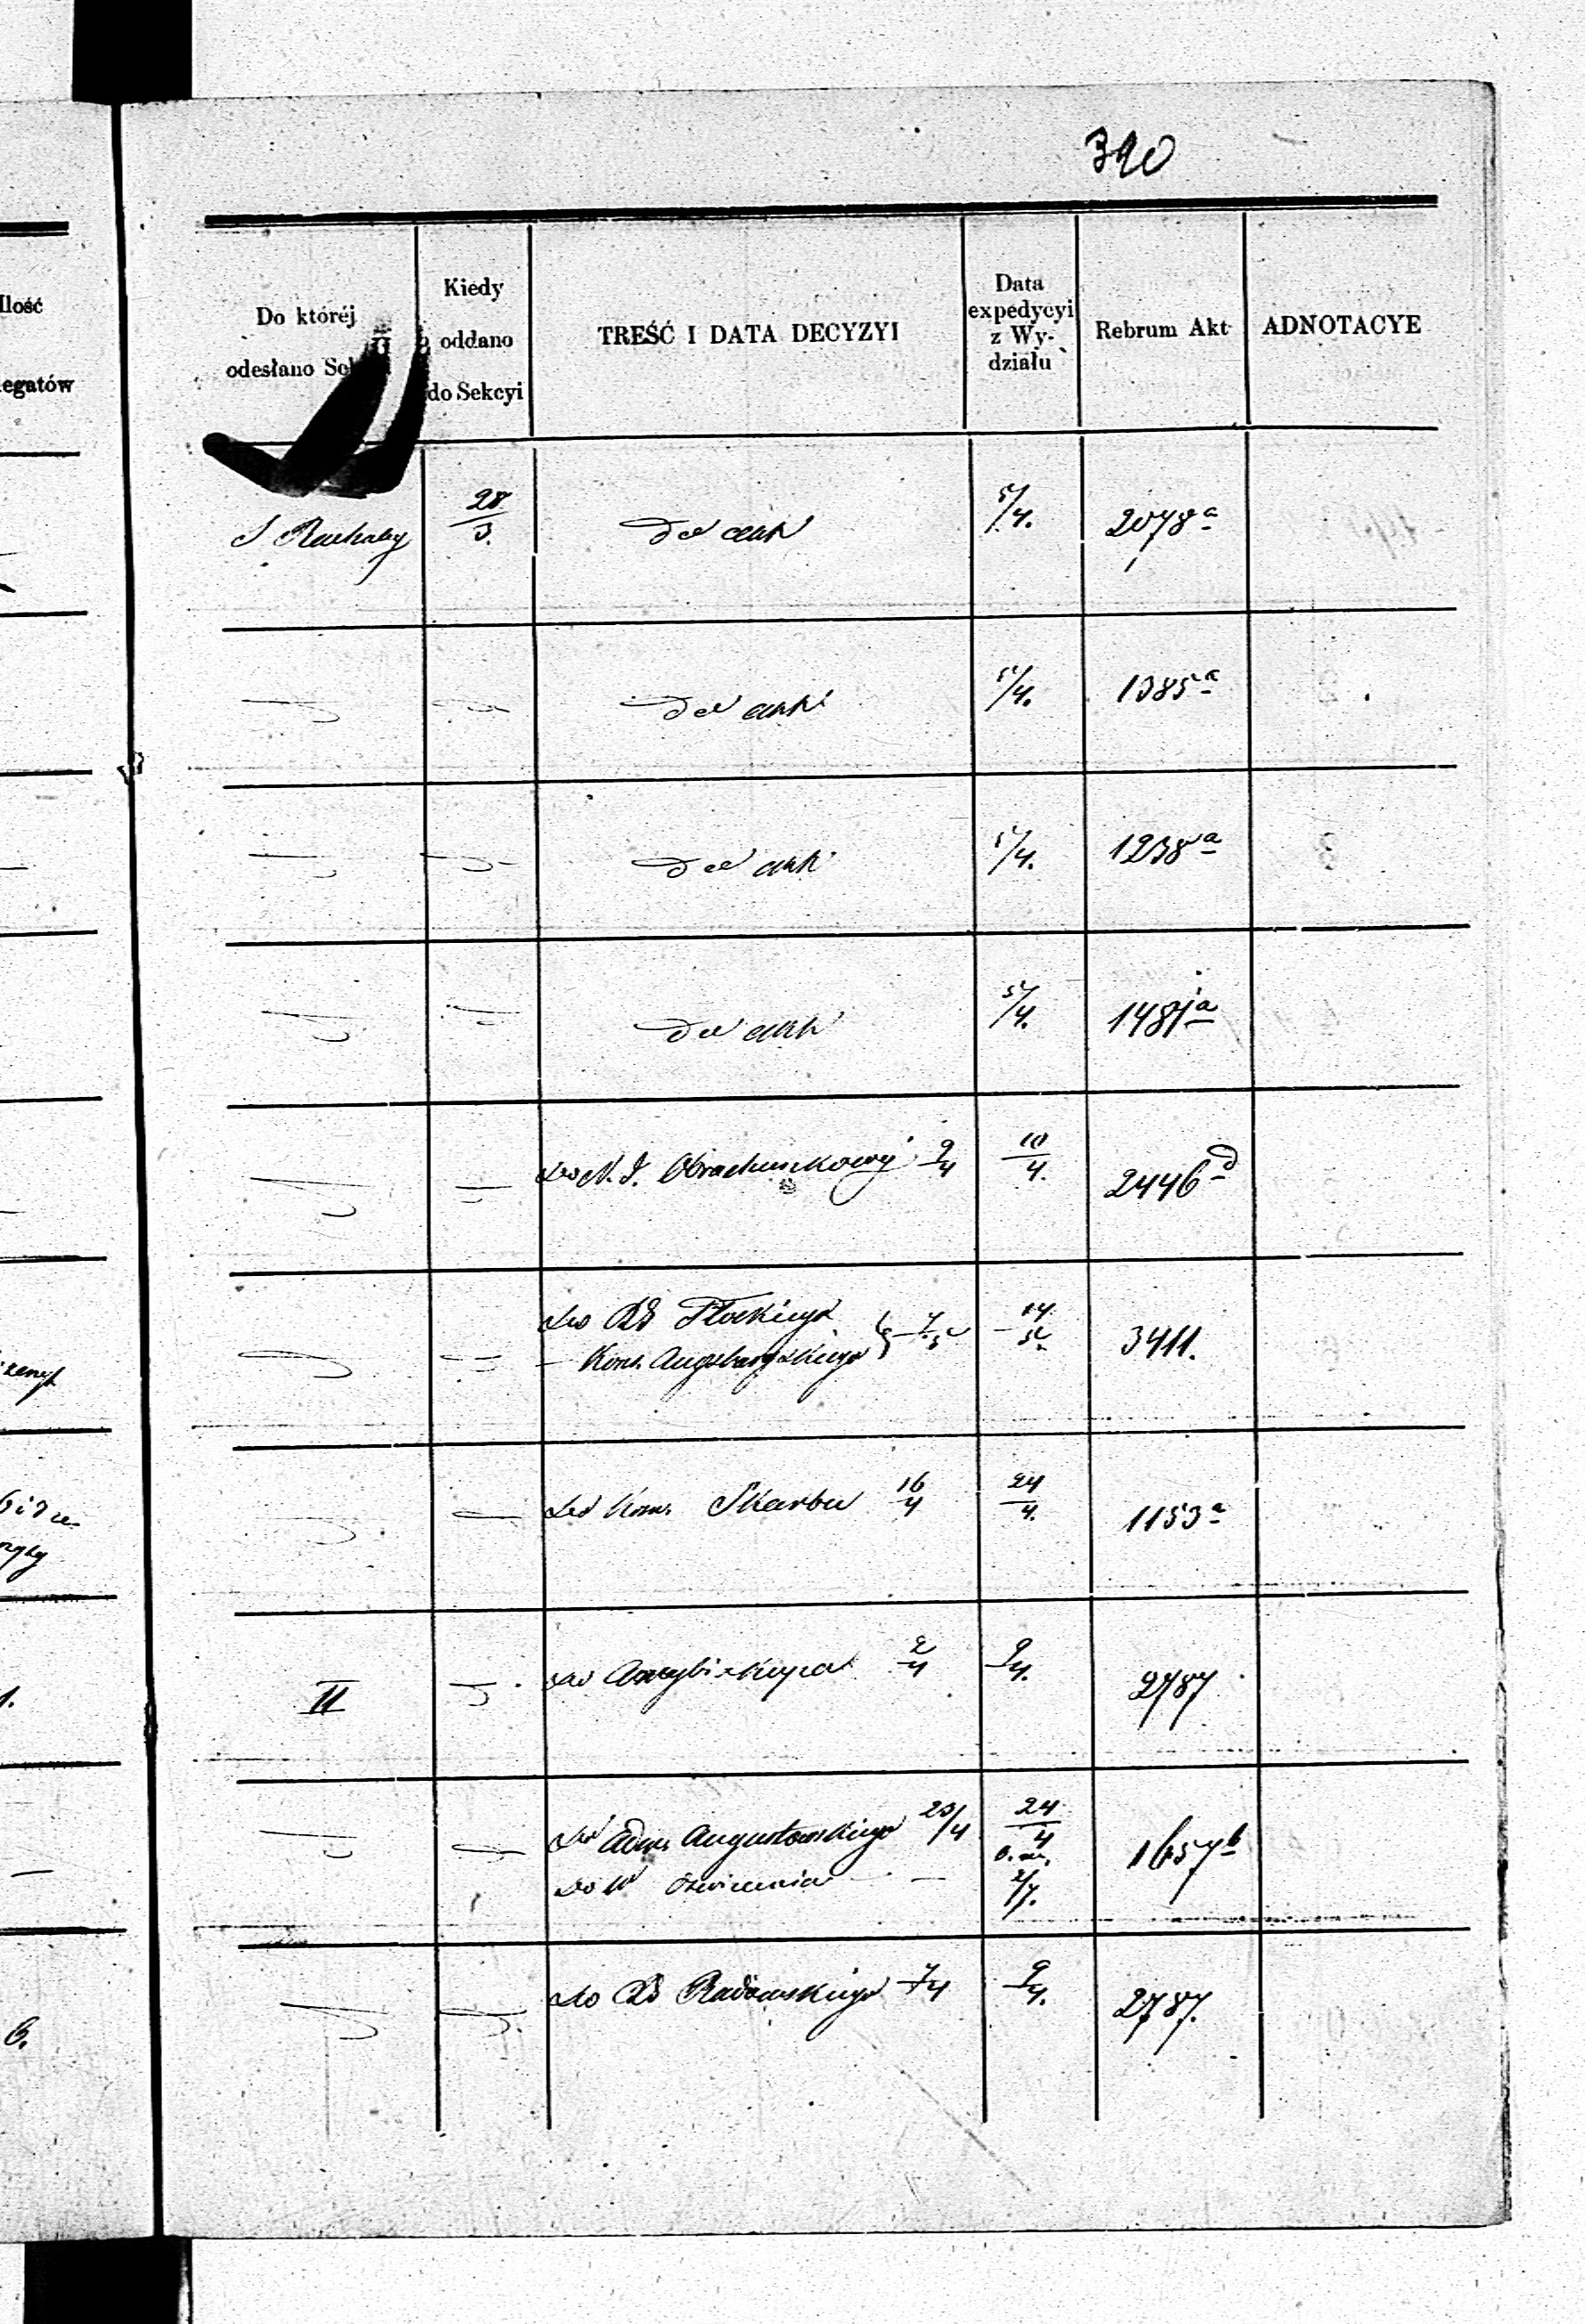 320
Ilość
egatów
Do któréj
odesłano
Kiedy
oddano
do Sekcyi
TREŚĆ I DATA DECYZYI
Data
expedycyi
z Wy-
działu
Rebrum Akt
ADNOTACYE
S Rachuby 28/3. Do akt 5/4. 2078 a
Do akt 5/4. 1385 a
Do akt 5/4. 1238 a
Do akt 5/4. 1481 a
Do N. I. Obrachunkowej 9/4 10/4. 2446 d
Do RG Płockiego
- Kons. Augsburgskiego } 7/5 14/5. 3411.
Do Kom. Skarbu 16/4 24/4. 1153 a
II Do Arcybiskupa 2/4 9/4. 2787
Do Adm. Augustowskiego 23/4 24/4 1657 b
Do W Oświecenia - 2/7.
Do RG Radomskiego 7/4 9/4. 2787.
6.